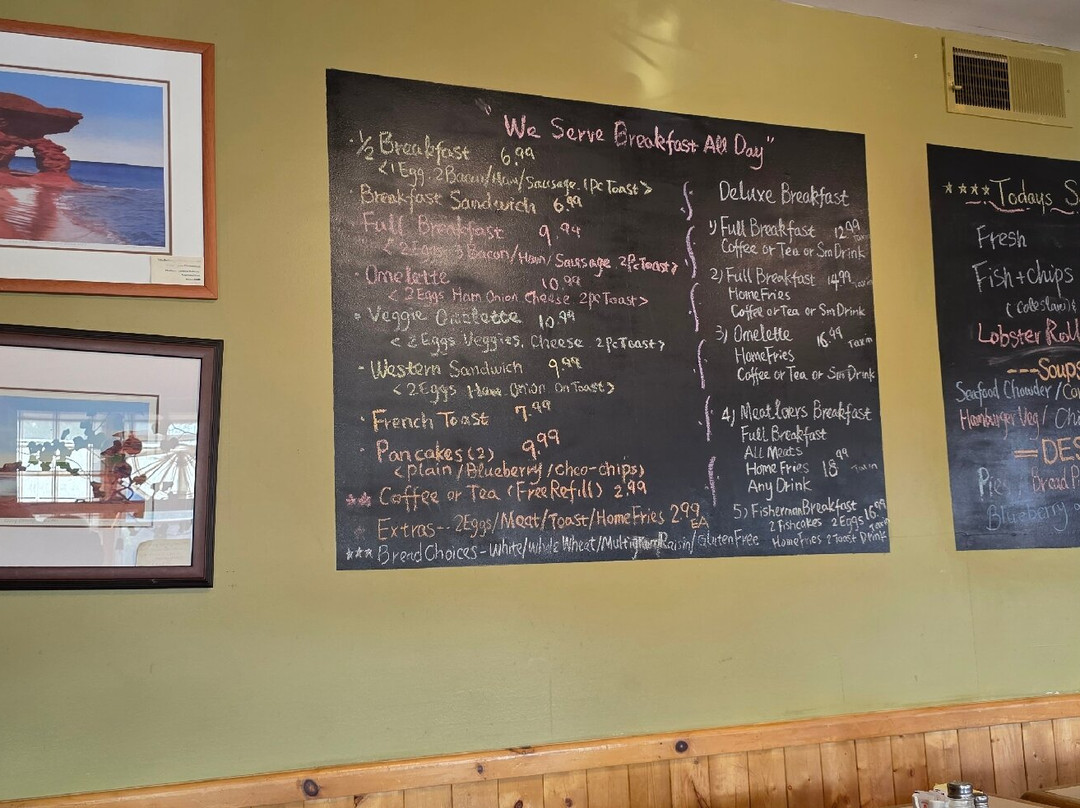 "We Serve Breakfast All Day"
· 1/2 Breakfast 6.99
<1 Egg 2 Bacon/Ham/Sausage 1pc Toast>
· Breakfast Sandwich 6.99
Full Breakfast 9.99
<2 Eggs 3 Bacon/Ham/Sausage 2pc Toast>
· Omelette 10.99
<2 Eggs Ham Onion Cheese 2pc Toast>
· Veggie Omelette 10.99
<2 Eggs Veggies, Cheese 2pc Toast>
· Western Sandwich 9.99
<2 Eggs Ham Onion On Toast>
· French Toast 7.99
· Pancakes (2) 9.99
<Plain/Blueberry/Choco-chips>
** Coffee or Tea (Free Refill) 2.99
* Extras -- 2 Eggs/Meat/Toast/Home Fries 2.99 EA
*** Bread Choices - White/Whole Wheat/Multigrain/Raisin/Gluten Free
Deluxe Breakfast
1) Full Breakfast 12.99 Tax in
Coffee or Tea or Sm Drink
2) Full Breakfast 14.99 Tax in
Home Fries
Coffee or Tea or Sm Drink
3) Omelette 16.99 Tax in
Home Fries
Coffee or Tea or Sm Drink
4) Meatlovers Breakfast
Full Breakfast
All Meats
Home Fries 18.99 Tax in
Any Drink
5) Fisherman Breakfast 16.99 Tax in
2 Fishcakes 2 Eggs
Home Fries 2 Toast Drink
**** Todays S
Fresh
Fish + chips
(Coleslaw)
Lobster Roll
--- Soups
Seafood Chowder /
Hamburger Veg / Chi
= DES
Pies / Bread P
Blueberry